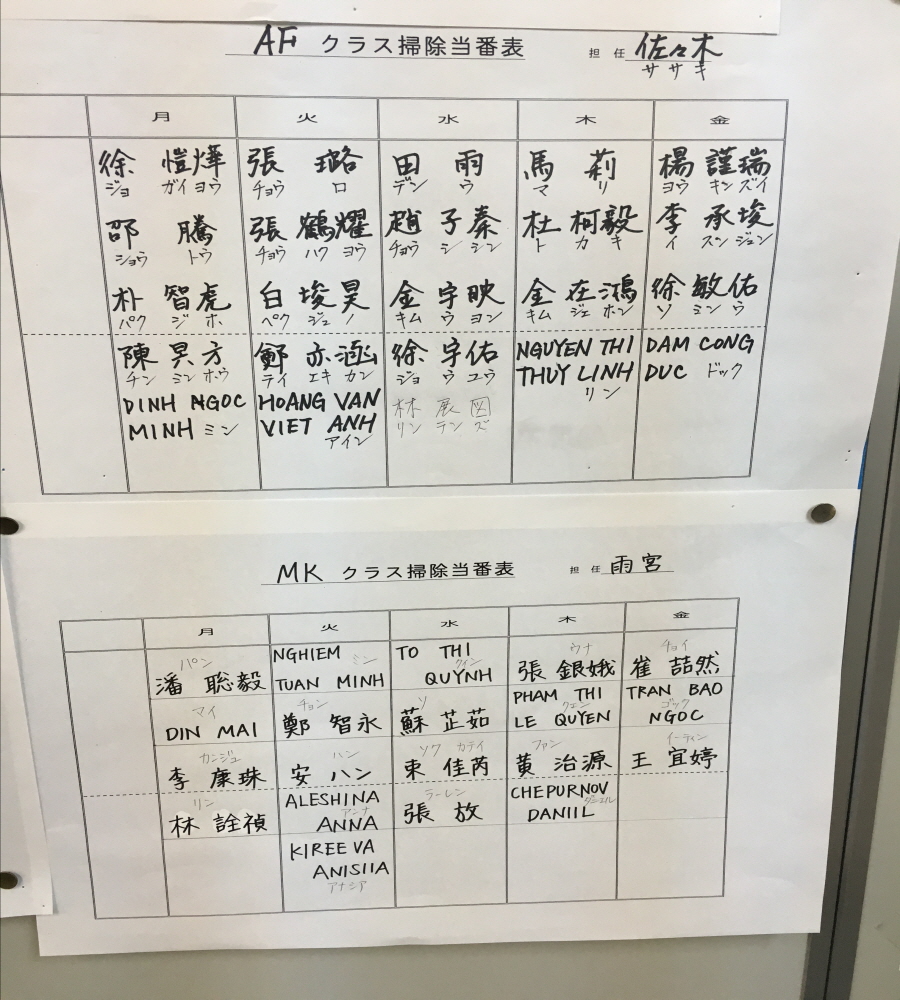 AF クラス掃除当番表 担任 佐々木
ササキ
月 火 水 木 金
徐 愷燁 張 璐 田 雨 馬 莉 楊 謹瑞
ジョ ガイ ヨウ チョウ ロ デン ウ マ リ ヨウ キン ズイ
邵 騰 張 鶴耀 趙 子秦 杜 柯毅 李 承埈
ショウ トウ チョウ ハク ヨウ チョウ シ シン ト カ キ イ スン ジュン
朴 智虎 白 埈昊 金 宇映 金 在鴻 徐 敏佑
パク ジ ホ ペク ジュノ キム ウ ヨン キム ジェ ホン ソ ミン ウ
陳 旻方 鄭 亦涵 徐 宇佑 NGUYEN THI DAM CONG
チン ミン ホウ テイ エキ カン ジョ ウ ユウ THUY LINH DUC ドック
リン
DINH NGOC HOANG VAN 林 展図
MINH ミン VIET ANH リン テン ズ
アイン
MK クラス掃除当番表 担任 雨宮
月 火 水 木 金
パン NGHIEM ミン TO THI クイン ウナ チョイ
潘 聡毅 TUAN MINH QUYNH 張 銀娥 崔 喆然
マイ チョン ソ PHAM THI クェン TRAN BAO ゴック
DIN MAI 鄭 智永 蘇 芷茹 LE QUYEN NGOC
カンジュ ハン ソク カテイ ファン イーティン
李 廉珠 安 ハン 東 佳芮 黄 治源 王 宜婷
リン ALESHINA アンナ ラーレン CHEPURNOV
林 詮禎 ANNA 張 放 DANIIL
KIREEVA
ANISIIA
アナシア